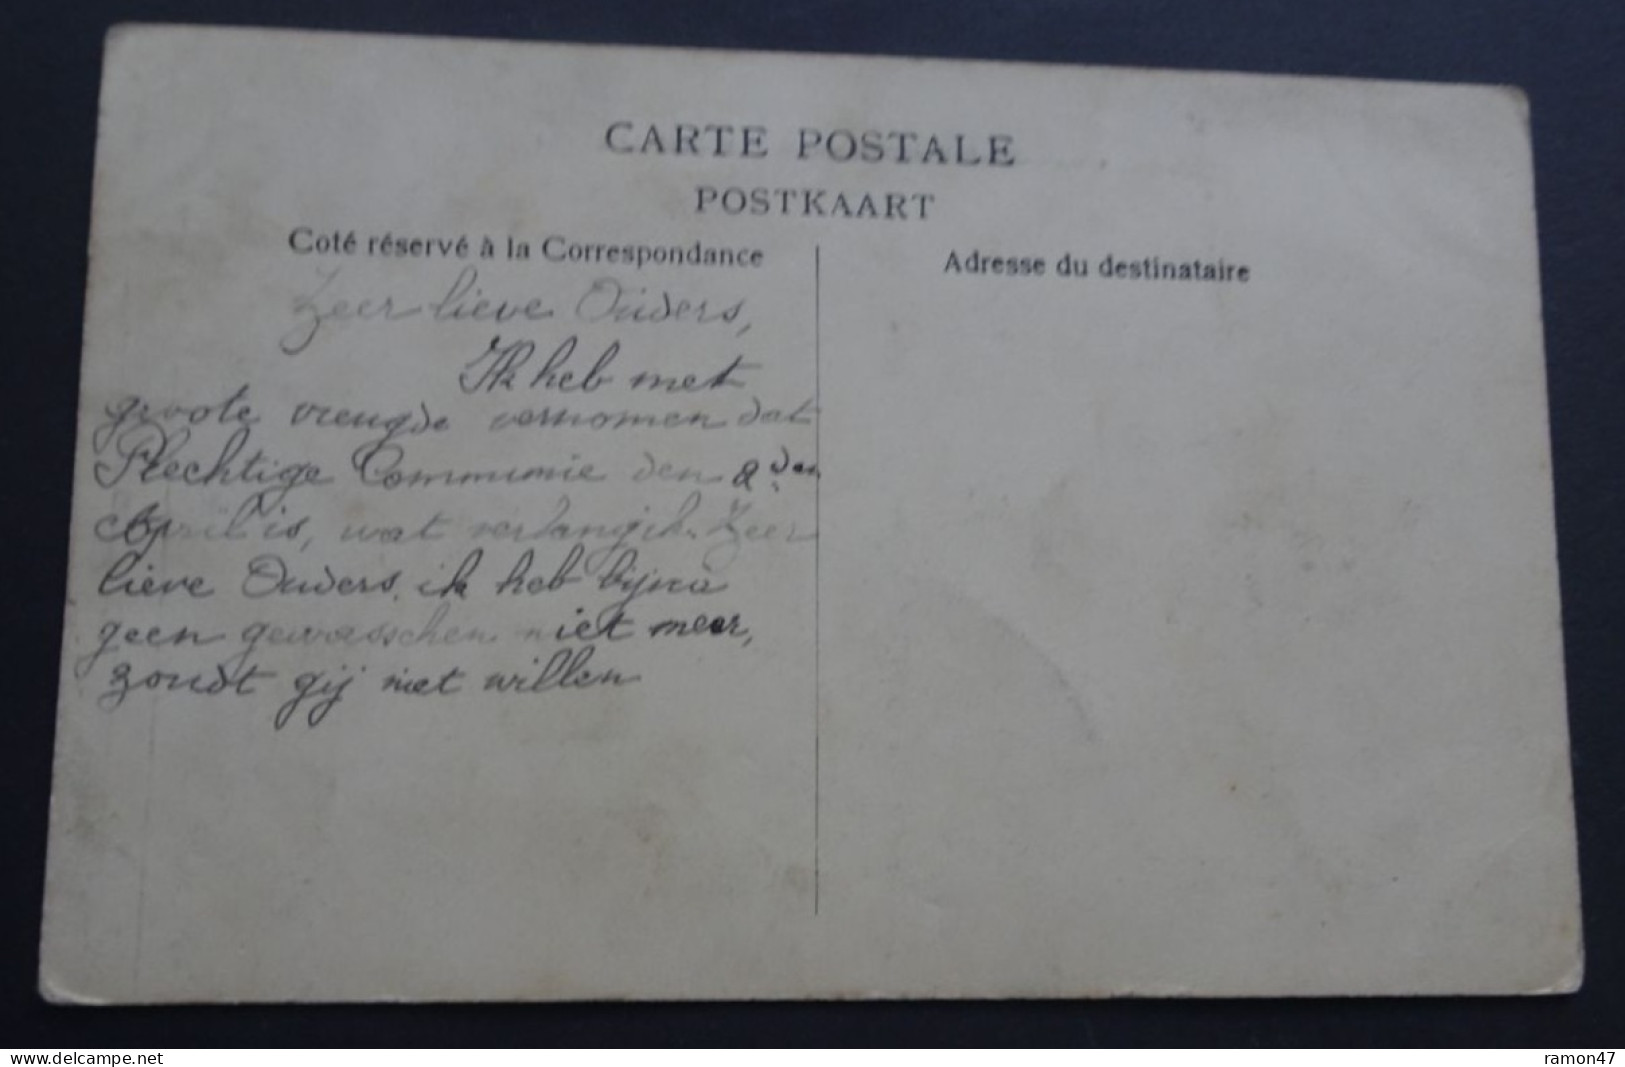 CARTE POSTALE
POSTKAART
Coté réservé à la Correspondance
Adresse du destinataire
Zeer lieve Ouders,
Ik heb met
groote vreugde vernomen dat
Plechtige Communie den 2den
April is, wat verlang ik. Zeer
lieve Ouders, ik heb bijna
geen gewasschen niet meer,
zoudt gij niet willen
www.delcampe.net
ramon47